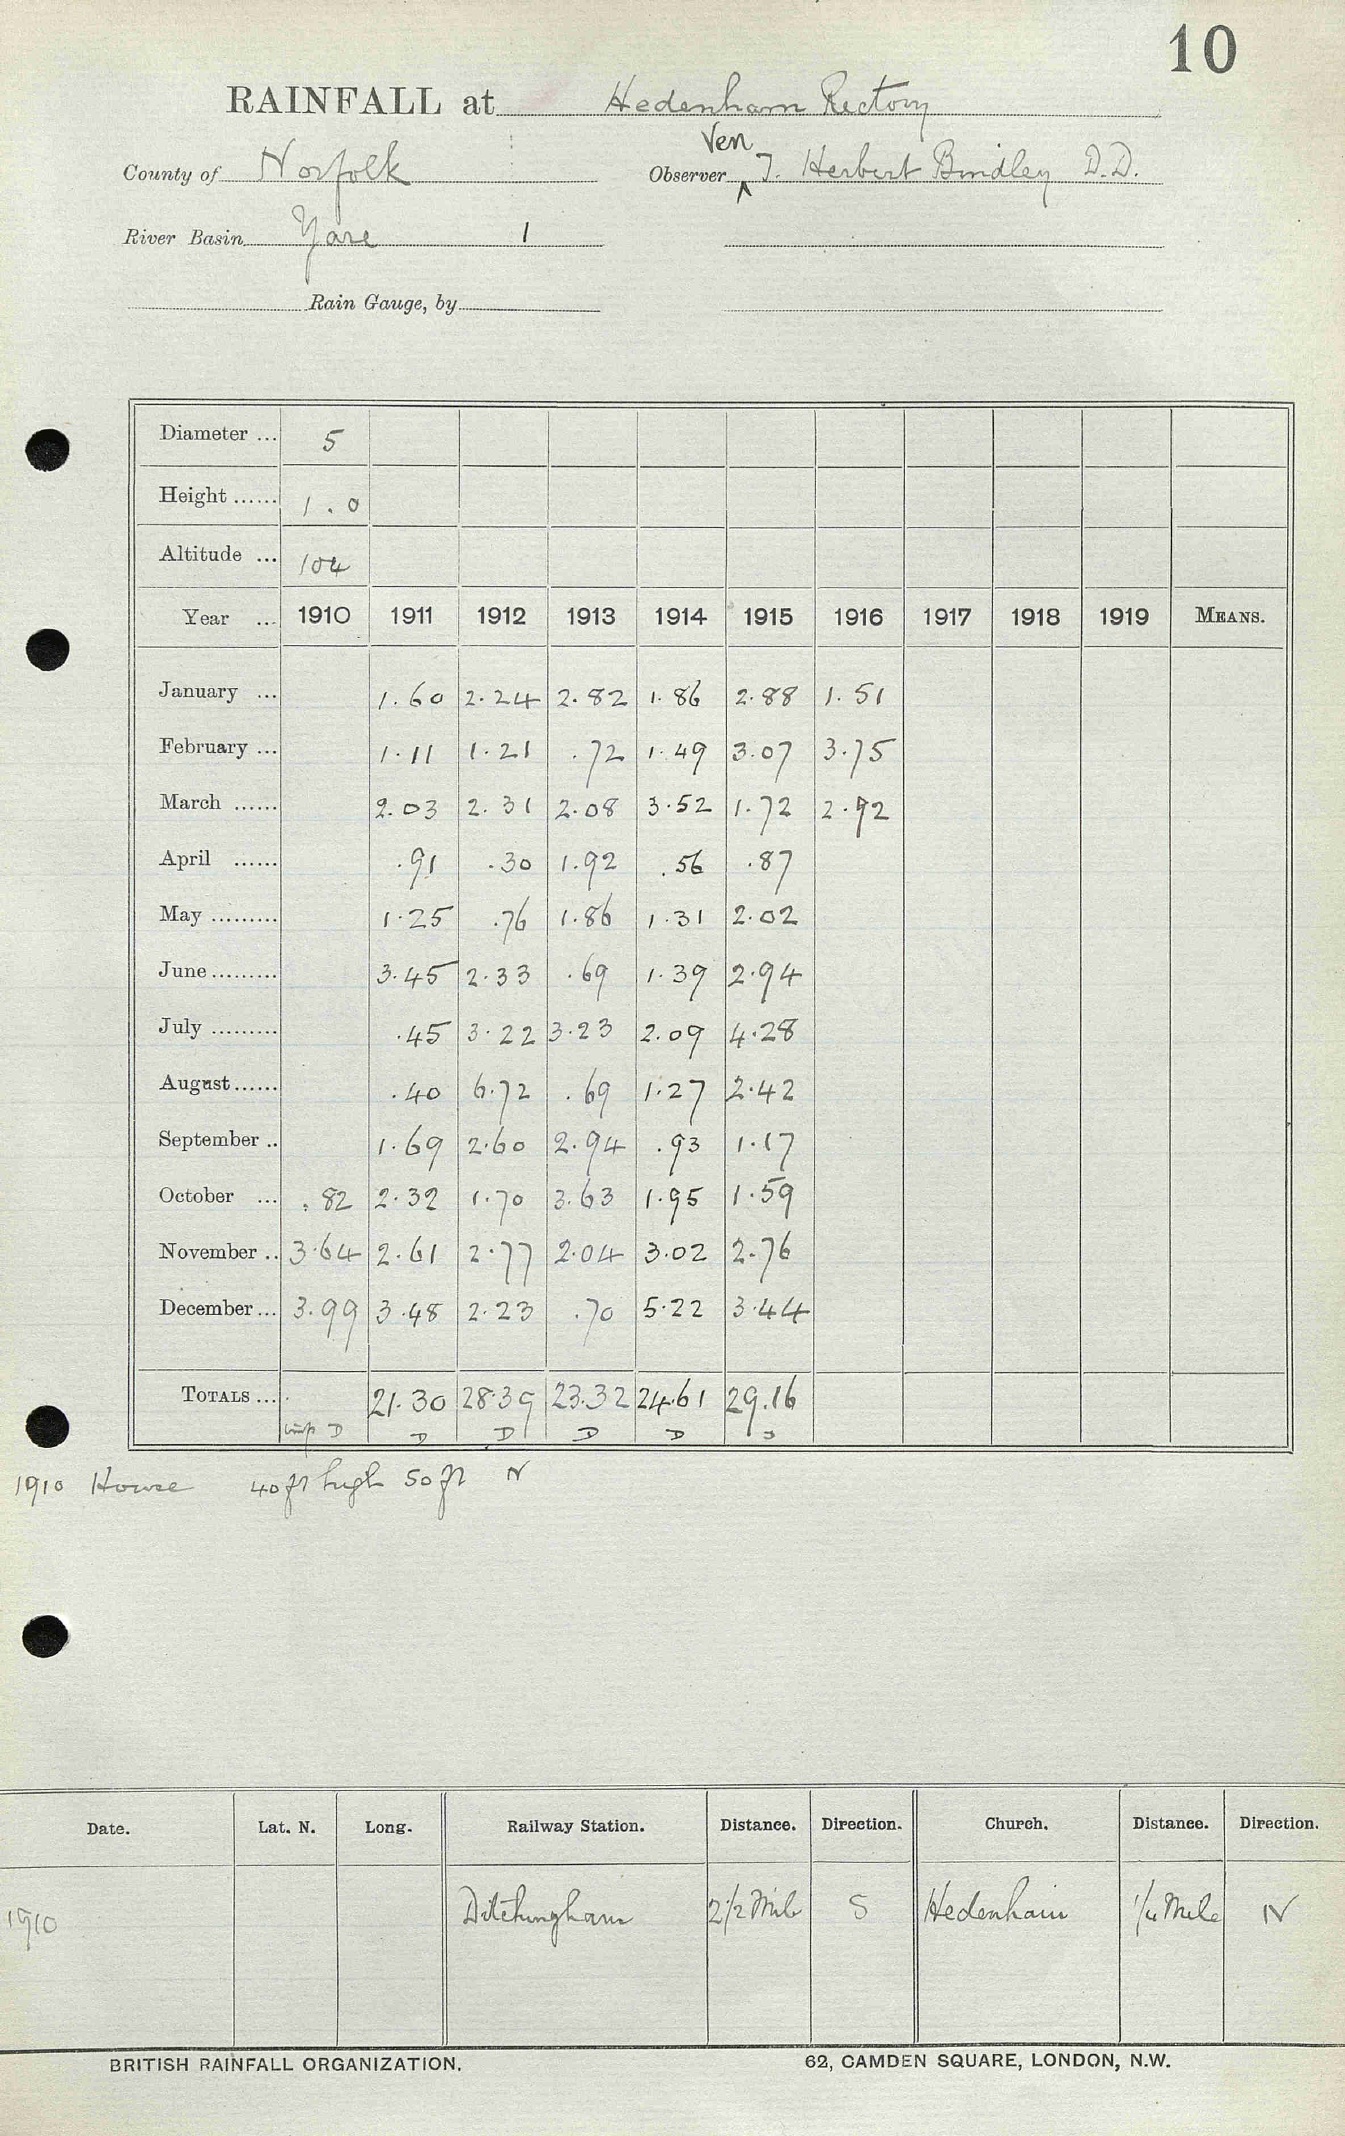 10
RAINFALL at Hedenham Rectory
Ven
County of Norfolk Observer ^ T. Herbert Bindley D.D.
River Basin Yare 1
Rain Gauge, by
Diameter ... 5
Height ...... 1.0
Altitude ... 104
Year ... 1910 1911 1912 1913 1914 1915 1916 1917 1918 1919 MEANS.
January ... 1.60 2.24 2.82 1.86 2.88 1.51
February ... 1.11 1.21 .72 1.49 3.07 3.75
March ...... 2.03 2.31 2.08 3.52 1.72 2.92
April ...... .91 .30 1.92 .56 .87
May ......... 1.25 .76 1.86 1.31 2.02
June ......... 3.45 2.33 .69 1.39 2.94
July ......... .45 3.22 3.23 2.09 4.28
August ...... .40 6.72 .69 1.27 2.42
September .. 1.69 2.60 2.94 .93 1.17
October ... .82 2.32 1.70 3.63 1.95 1.59
November .. 3.64 2.61 2.77 2.04 3.02 2.76
December ... 3.99 3.48 2.23 .70 5.22 3.44
TOTALS ... 21.30 28.39 23.32 24.61 29.16
D D D D D
1910 House 40 ft high 50 ft N
Date. Lat. N. Long. Railway Station. Distance. Direction. Church. Distance. Direction.
1910 Ditchingham 2 1/2 Mile S Hedenham 1/4 Mile N
BRITISH RAINFALL ORGANIZATION. 62, CAMDEN SQUARE, LONDON, N.W.